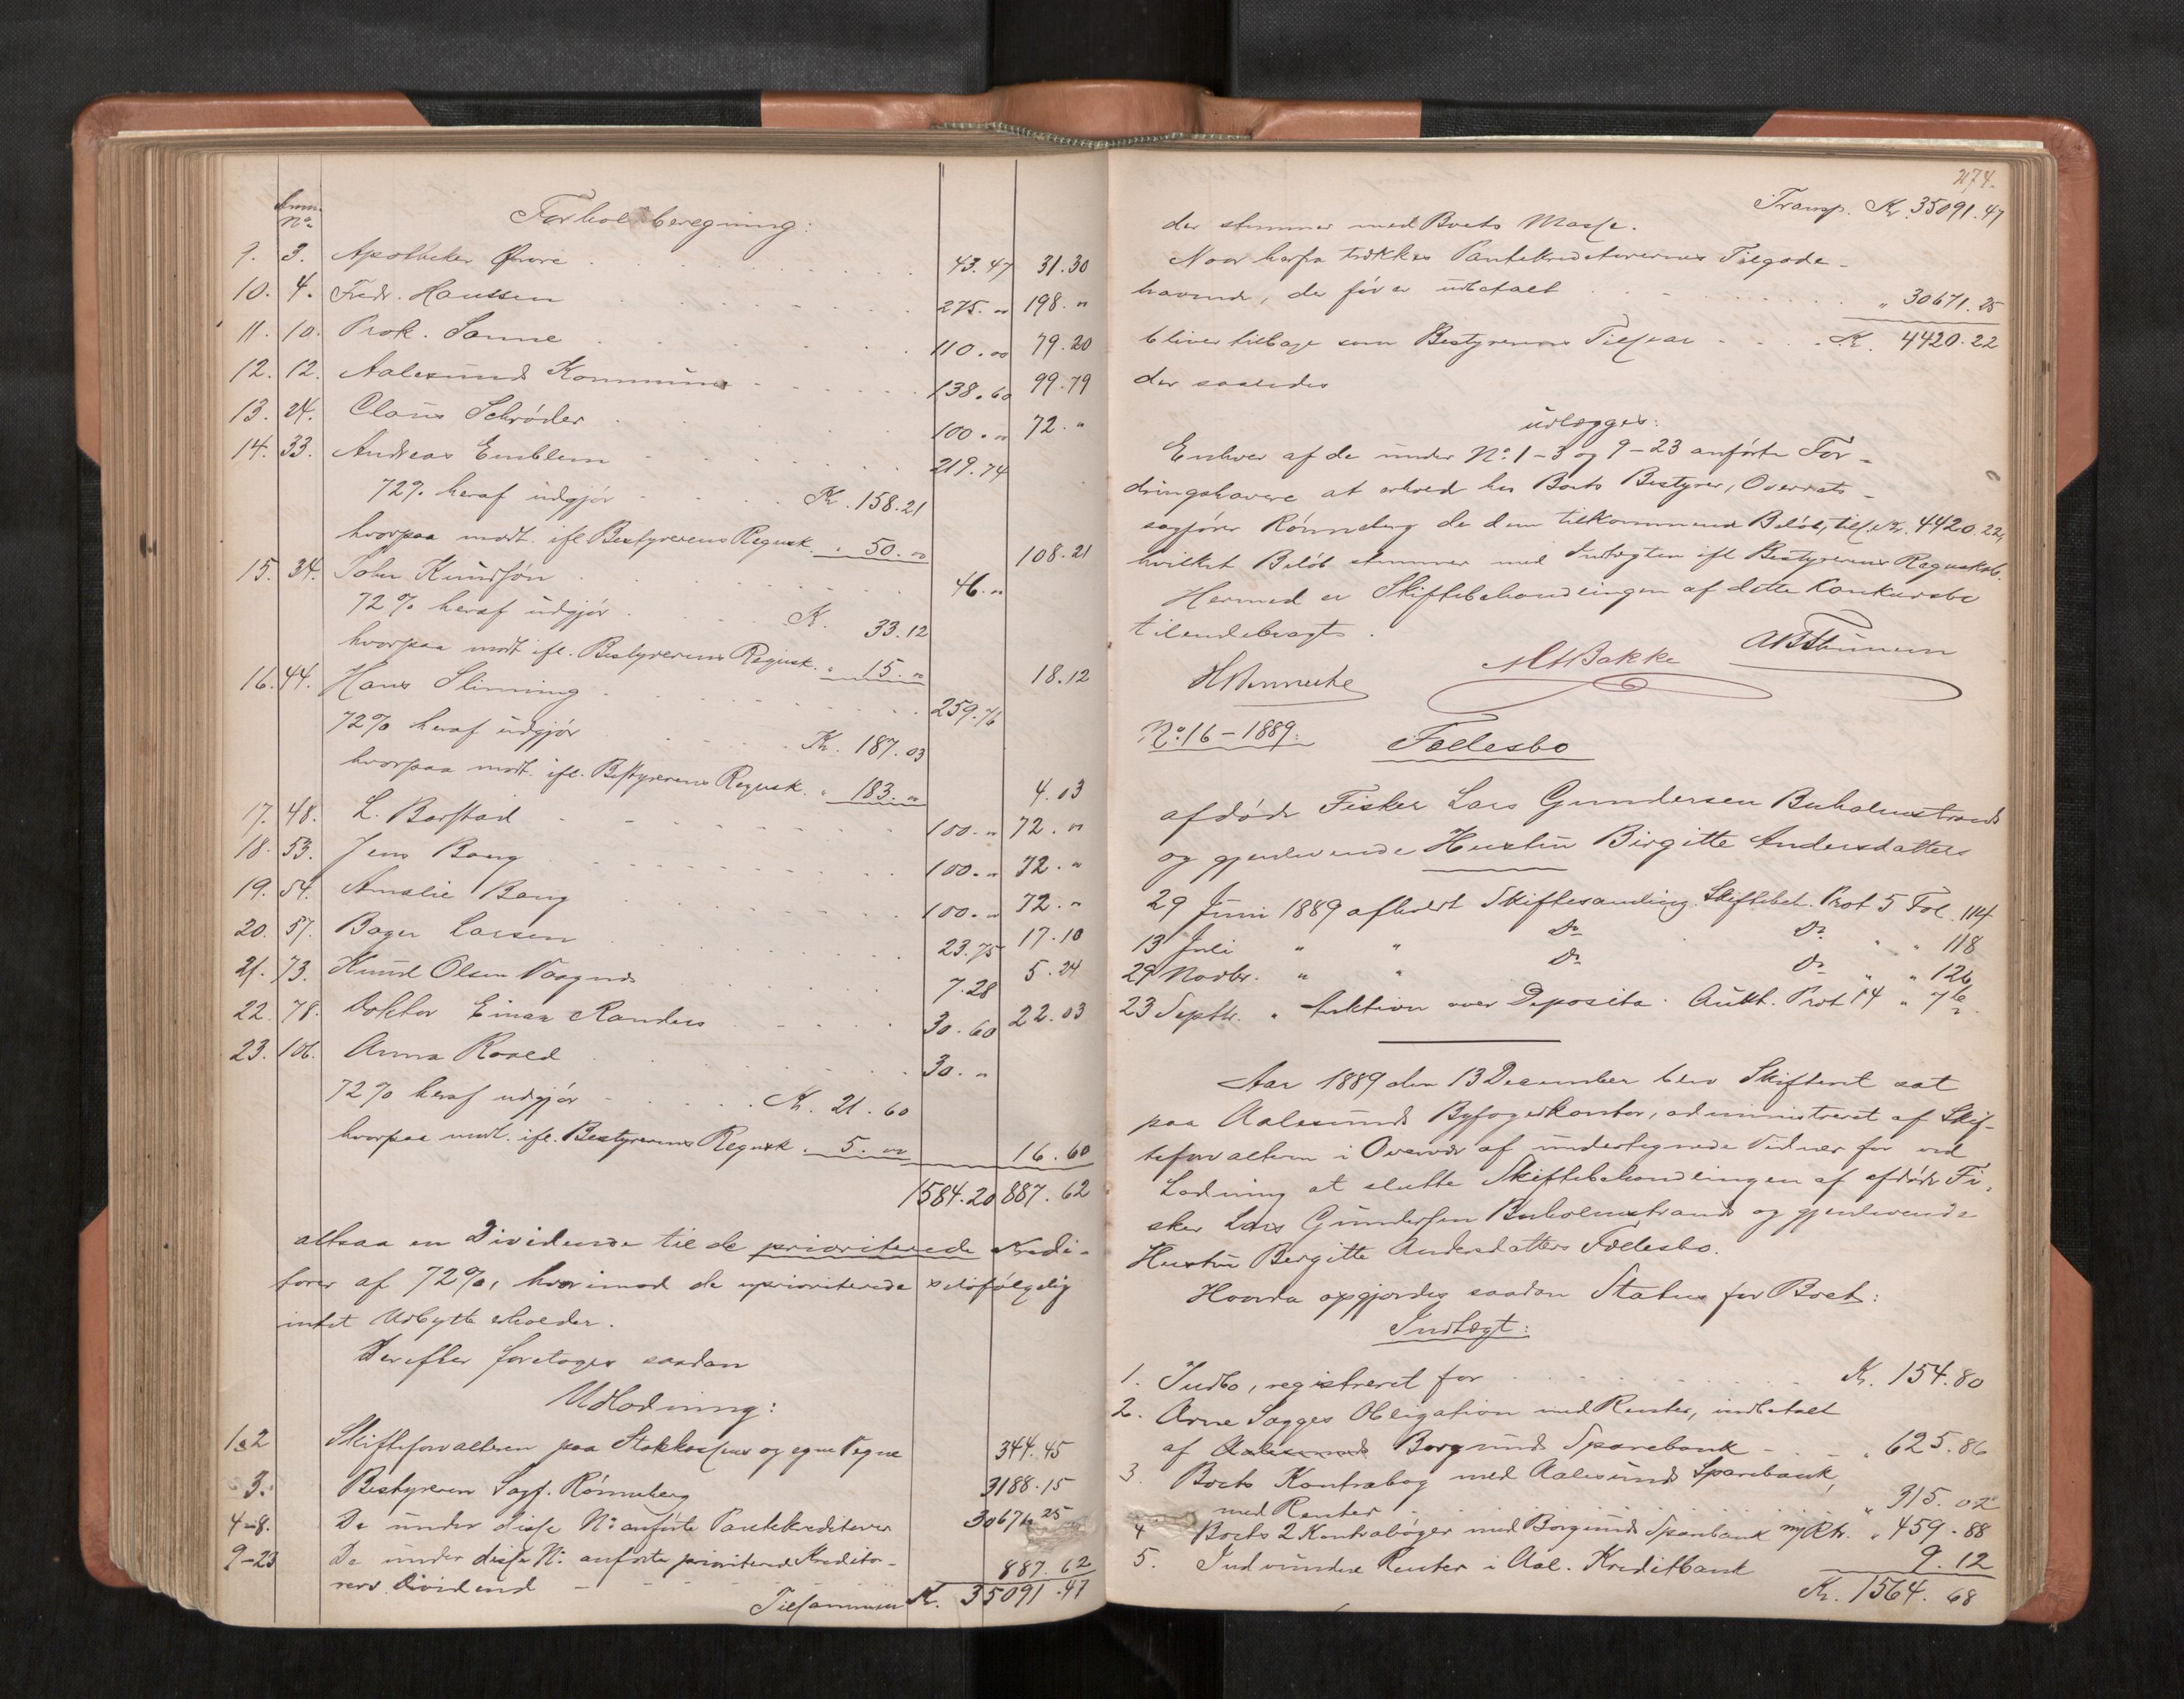 Anm.
No.
Forholdsberegning:
9. 3. Apotheker Øwre 43.47 31.30
10. 4. Fredr. Hanssen 275. " 198. "
11. 10. Prok. Sanne 110. 00 79.20
12. 12. Aalesunds Kommune 138.60 99.79
13. 24. Claus Schrøder 100. " 72. "
14. 33. Andreas Emblem 219.74
72% heraf udgjør Kr. 158.21
hvorpaa modt. ifl. Bestyrerens Regnsk. " 50. " 108.21
15. 34. John Knudsøn 46. "
72% heraf udgjør K. 33.12
hvorpaa modt. ifl. Bestyrerens Regnsk. " 15. " 18.12
16. 44. Hans Slinning 259.76
72% heraf udgjør Kr. 187.03
hvorpaa modt. ifl. Bestyrerens Regnsk. " 183. " 4.03
17. 48. L. Barstad 100. " 72. "
18. 53. Jens Bang 100. " 72. "
19. 54. Amalie Bang 100. " 72. "
20. 57. Bager Larsen 23.75 17.10
21. 73. Knud Olsen 7.28 5.24
22. 78. Doktor Einar Randers 30.60 22.03
23. 106. Anna Roald 30. "
72% heraf udgjør Kr. 21.60
hvorpaa modt. ifl. Bestyrerens Regnsk. " 5. " 16.60
1584.20 887.62
altsaa en Dividende til de prioriterede Kredi-
torer af 72%, hvorimod de uprioriterede selvfølgelig
intet Udbytte erholder.
Derefter foretoges saadan
Udlodning:
1&2 Skifteforvalteren paa Statskassens og egne Vegne 344.45
3. Bestyreren Sagf. Rønneberg 3188.15
4-8. De under disse No. anførte Pantekreditorer 30671.25
9-23 De under disse No. anførte prioriterede Kredito-
rers Dividend 887.62
Tilsammen Kr. 35091.47
274.
Transp. Kr. 35091.47
der stemmer med Boets Masse.
Naar herfra trækkes Pantekreditorernes Tilgode-
havende, der før er udbetalt " 30671.25
bliver tilbage som Bestyrerens Tilsvar Kr. 4420.22
der saaledes
udlægges:
Enhver af de under No. 1-3 og 9-23 anførte For-
dringshavere at erhold hos Boets Bestyrer, Overrets-
sagfører Rønneberg de dem tilkommende Beløb, tils. Kr. 4420.22,
hvilket Beløb stemmer med Indtægten ifl. Bestyrerens Regnskab.
Hermed er Skiftebehandlingen af dette Konkursbo
tilendebragt.
MBakke
No. 16 - 1889: Fælesbo
afdøde Fisker Lars Gundersen Buholmstrand
og gjenlevende Hustru Birgitte Andersdatters
29 Juni 1889 afholdt Skiftesamling. Skiftebeh. Prot 5 Fol. 114
13 Juli " " Do. Do. " " 118
29 Novbr. " " Do. Do. " " 126
23 Septbr. " Auktion over Deposita. Aukt. Prot 14 " 76
Aar 1889 den 13 December blev Skifteret sat
paa Aalesunds Byfogedkontor, administreret af Skif-
teforvalteren i Overvær af undertegnede Vidner for ved
Lodning at slutte Skiftebehandlingen af afdøde Fi-
sker Lars Gundersen Buholmstrand og gjenlevende
Hustru Bergitte Andersdatters Fælesbo.
Hvorda opgjordes saadan Status for Boet:
Indtægt:
1. Indbo, registreret for Kr. 154.80
2. Arne Sagges Obligation med Renter, indbetalt
af Aalesunds Borgunds Sparebank " 625.86
3. Boets Kontrabog med Aalesunds Sparebank,
med Renter " 315.02
4. Boets 2 Kontrabøger med Borgunds Sparebank m/Rtr. " 459.88
5. Indvundne Renter i Aal. Kreditbank 9.12
Kr. 1564.68